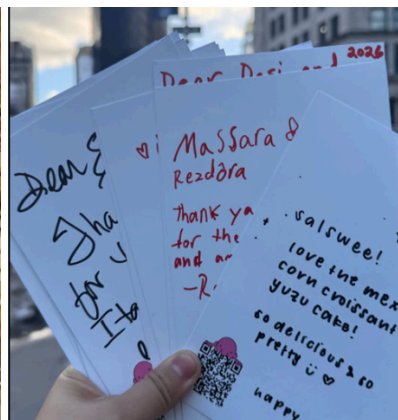 Dear
Tha
for
Ita
2026
Dear Desi and
Massara &
Rezdôra
Thank ya
for the
and
-R.
salswee!
love the mex
corn croissant
yuzu cake!
so delicious & so
pretty
happy